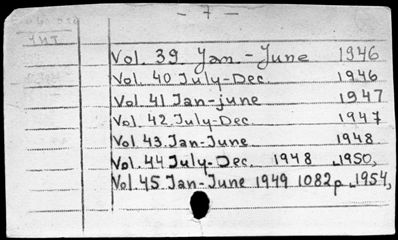 - 7 -
Vol. 39. Jan. - June 1946
Vol. 40 July-Dec. 1946
Vol. 41 Jan-june 1947
Vol. 42 July-Dec. 1947
Vol. 43 Jan-June 1948
Vol. 44 July-Dec. 1948 1950,
Vol. 45 Jan-June 1949 1082p 1954,